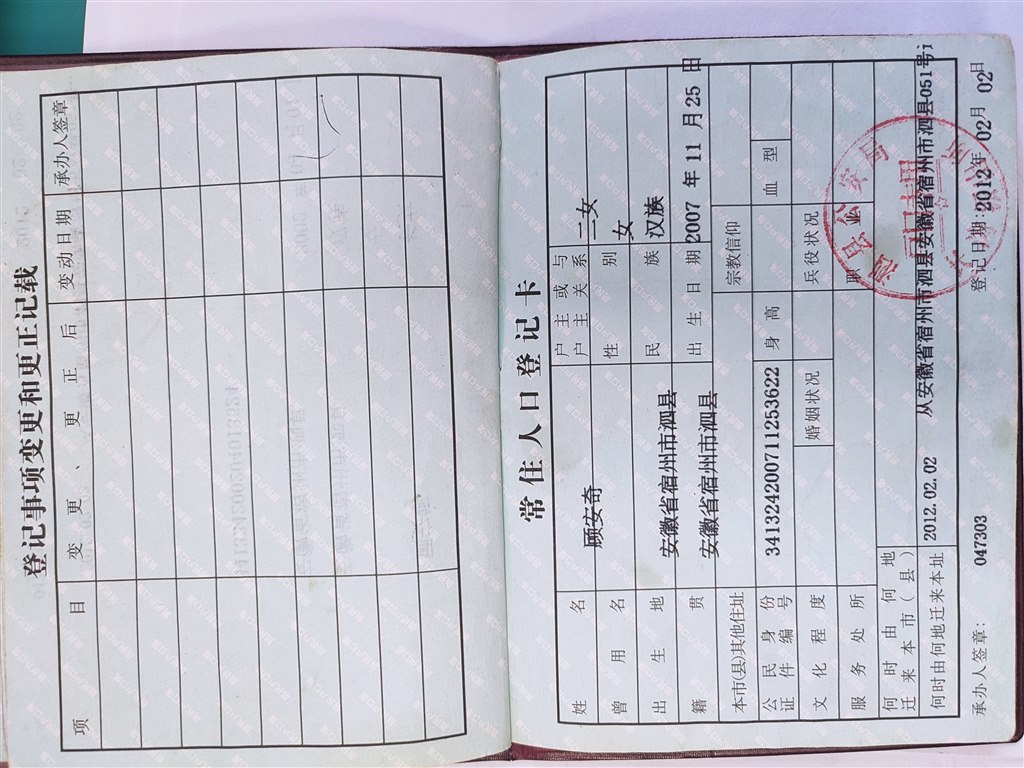 登记事项变更和更正记载
项 目 变 更 、 更 正 后 变动日期 承办人签章
常住人口登记卡
姓 名 顾安奇 户主或与户主关系 二女
曾 用 名 性 别 女
出 生 地 安徽省宿州市泗县 民 族 汉族
籍 贯 安徽省宿州市泗县 出 生 日 期 2007 年 11 月 25 日
本市(县)其他住址 宗教信仰
公 民 身 份 证 件 编 号 341324200711253622 身 高 血 型
文 化 程 度 婚姻状况 兵役状况
服 务 处 所 职
何 时 由 何 地 迁 来 本 市 ( 县 )
何时由何地迁来本址 2012.02.02 从安徽省宿州市泗县安徽省宿州市泗县051号
承办人签章: 047303 登记日期: 2012年 02月 02日
泗县公安局